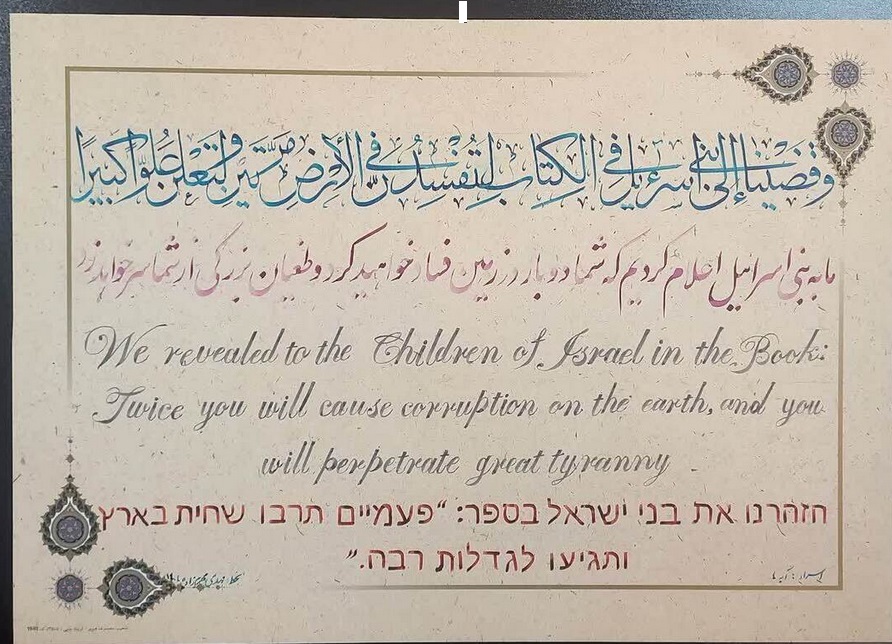 وقضينا إلى بني إسرءيل في الكتاب لتفسدن في الأرض مرتين ولتعلن علوا كبيرا
ما به بنی اسرائیل اعلام کردیم که شما دوبار در زمین فساد خواهید کرد و طغیان بزرگی از شما سر خواهد زد
We revealed to the Children of Israel in the Book:
Twice you will cause corruption on the earth, and you
will perpetrate great tyranny
הזהרנו את בני ישראל בספר: "פעמיים תרבו שחית בארץ
ותגיעו לגדלות רבה."